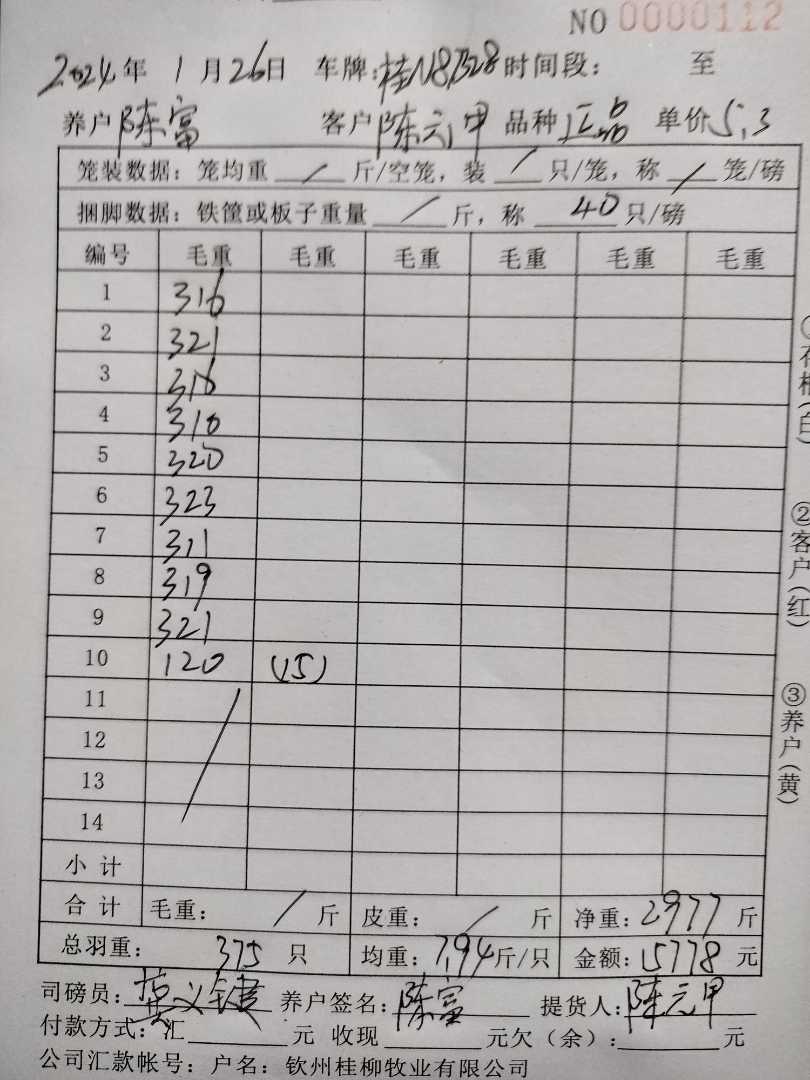 NO 0000112
2024年 1月26日 车牌:桂N8B328 时间段: 至
养户 陈富 客户 陈元甲 品种 正品 单价 5.3
笼装数据: 笼均重 / 斤/空笼, 装 / 只/笼, 称 / 笼/磅
捆脚数据: 铁筐或板子重量 / 斤, 称 40 只/磅
编号 毛重 毛重 毛重 毛重 毛重 毛重
1 316
2 321
3 316
4 310
5 320
6 323
7 311
8 319
9 321
10 120 (15)
11
12
13
14
小计
合计 毛重: / 斤 皮重: / 斤 净重: 2977 斤
总羽重: 375 只 均重: 7.94 斤/只 金额: 15778 元
司磅员: 养户签名: 陈富 提货人: 陈元甲
付款方式: 汇 元 收现 元欠(余): 元
公司汇款帐号: 户名: 钦州桂柳牧业有限公司
②客户(红)
③养户(黄)